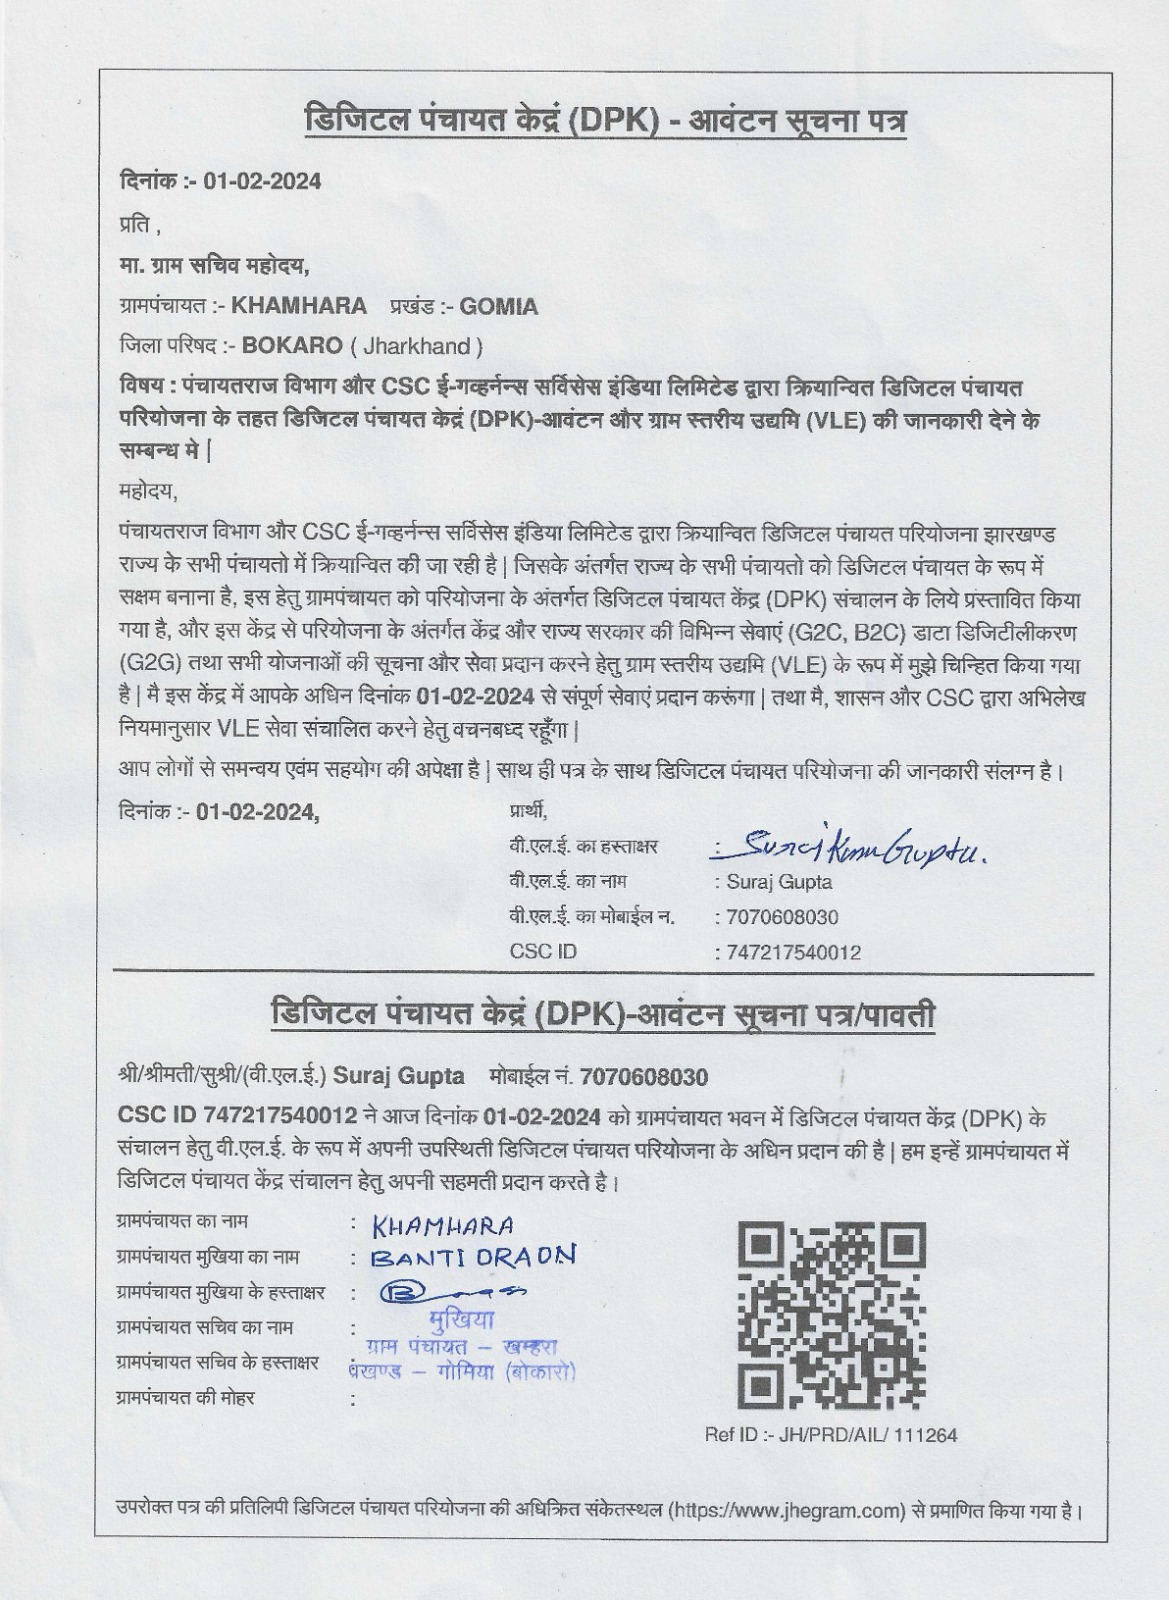 डिजिटल पंचायत केद्रं (DPK) - आवंटन सूचना पत्र
दिनांक :- 01-02-2024
प्रति ,
मा. ग्राम सचिव महोदय,
ग्रामपंचायत :- KHAMHARA प्रखंड :- GOMIA
जिला परिषद :- BOKARO ( Jharkhand )
विषय : पंचायतराज विभाग और CSC ई-गव्हर्नन्स सर्विसेस इंडिया लिमिटेड द्वारा क्रियान्वित डिजिटल पंचायत
परियोजना के तहत डिजिटल पंचायत केद्रं (DPK)-आवंटन और ग्राम स्तरीय उद्यमि (VLE) की जानकारी देने के
सम्बन्ध मे |
महोदय,
पंचायतराज विभाग और CSC ई-गव्हर्नन्स सर्विसेस इंडिया लिमिटेड द्वारा क्रियान्वित डिजिटल पंचायत परियोजना झारखण्ड
राज्य के सभी पंचायतो में क्रियान्वित की जा रही है | जिसके अंतर्गत राज्य के सभी पंचायतो को डिजिटल पंचायत के रूप में
सक्षम बनाना है, इस हेतु ग्रामपंचायत को परियोजना के अंतर्गत डिजिटल पंचायत केंद्र (DPK) संचालन के लिये प्रस्तावित किया
गया है, और इस केंद्र से परियोजना के अंतर्गत केंद्र और राज्य सरकार की विभिन्न सेवाएं (G2C, B2C) डाटा डिजिटीलीकरण
(G2G) तथा सभी योजनाओं की सूचना और सेवा प्रदान करने हेतु ग्राम स्तरीय उद्यमि (VLE) के रूप में मुझे चिन्हित किया गया
है | मै इस केंद्र में आपके अधिन दिनांक 01-02-2024 से संपूर्ण सेवाएं प्रदान करूंगा | तथा मै, शासन और CSC द्वारा अभिलेख
नियमानुसार VLE सेवा संचालित करने हेतु वचनबध्द रहूँगा |
आप लोगों से समन्वय एवंम सहयोग की अपेक्षा है | साथ ही पत्र के साथ डिजिटल पंचायत परियोजना की जानकारी संलग्न है |
दिनांक :- 01-02-2024,
प्रार्थी,
वी.एल.ई. का हस्ताक्षर : Suraj Kumar Gupta.
वी.एल.ई. का नाम : Suraj Gupta
वी.एल.ई. का मोबाईल न. : 7070608030
CSC ID : 747217540012
डिजिटल पंचायत केद्रं (DPK)-आवंटन सूचना पत्र/पावती
श्री/श्रीमती/सुश्री/(वी.एल.ई.) Suraj Gupta मोबाईल नं. 7070608030
CSC ID 747217540012 ने आज दिनांक 01-02-2024 को ग्रामपंचायत भवन में डिजिटल पंचायत केंद्र (DPK) के
संचालन हेतु वी.एल.ई. के रूप में अपनी उपस्थिती डिजिटल पंचायत परियोजना के अधिन प्रदान की है | हम इन्हें ग्रामपंचायत में
डिजिटल पंचायत केंद्र संचालन हेतु अपनी सहमती प्रदान करते है |
ग्रामपंचायत का नाम : KHAMHARA
ग्रामपंचायत मुखिया का नाम : BANTI ORAON
ग्रामपंचायत मुखिया के हस्ताक्षर :
ग्रामपंचायत सचिव का नाम :
ग्रामपंचायत सचिव के हस्ताक्षर :
ग्रामपंचायत की मोहर :
मुखिया
ग्राम पंचायत – खम्हरा
प्रखण्ड – गोमिया (बोकारो)
Ref ID :- JH/PRD/AIL/ 111264
उपरोक्त पत्र की प्रतिलिपी डिजिटल पंचायत परियोजना की अधिक्रित संकेतस्थल (https://www.jhegram.com) से प्रमाणित किया गया है |